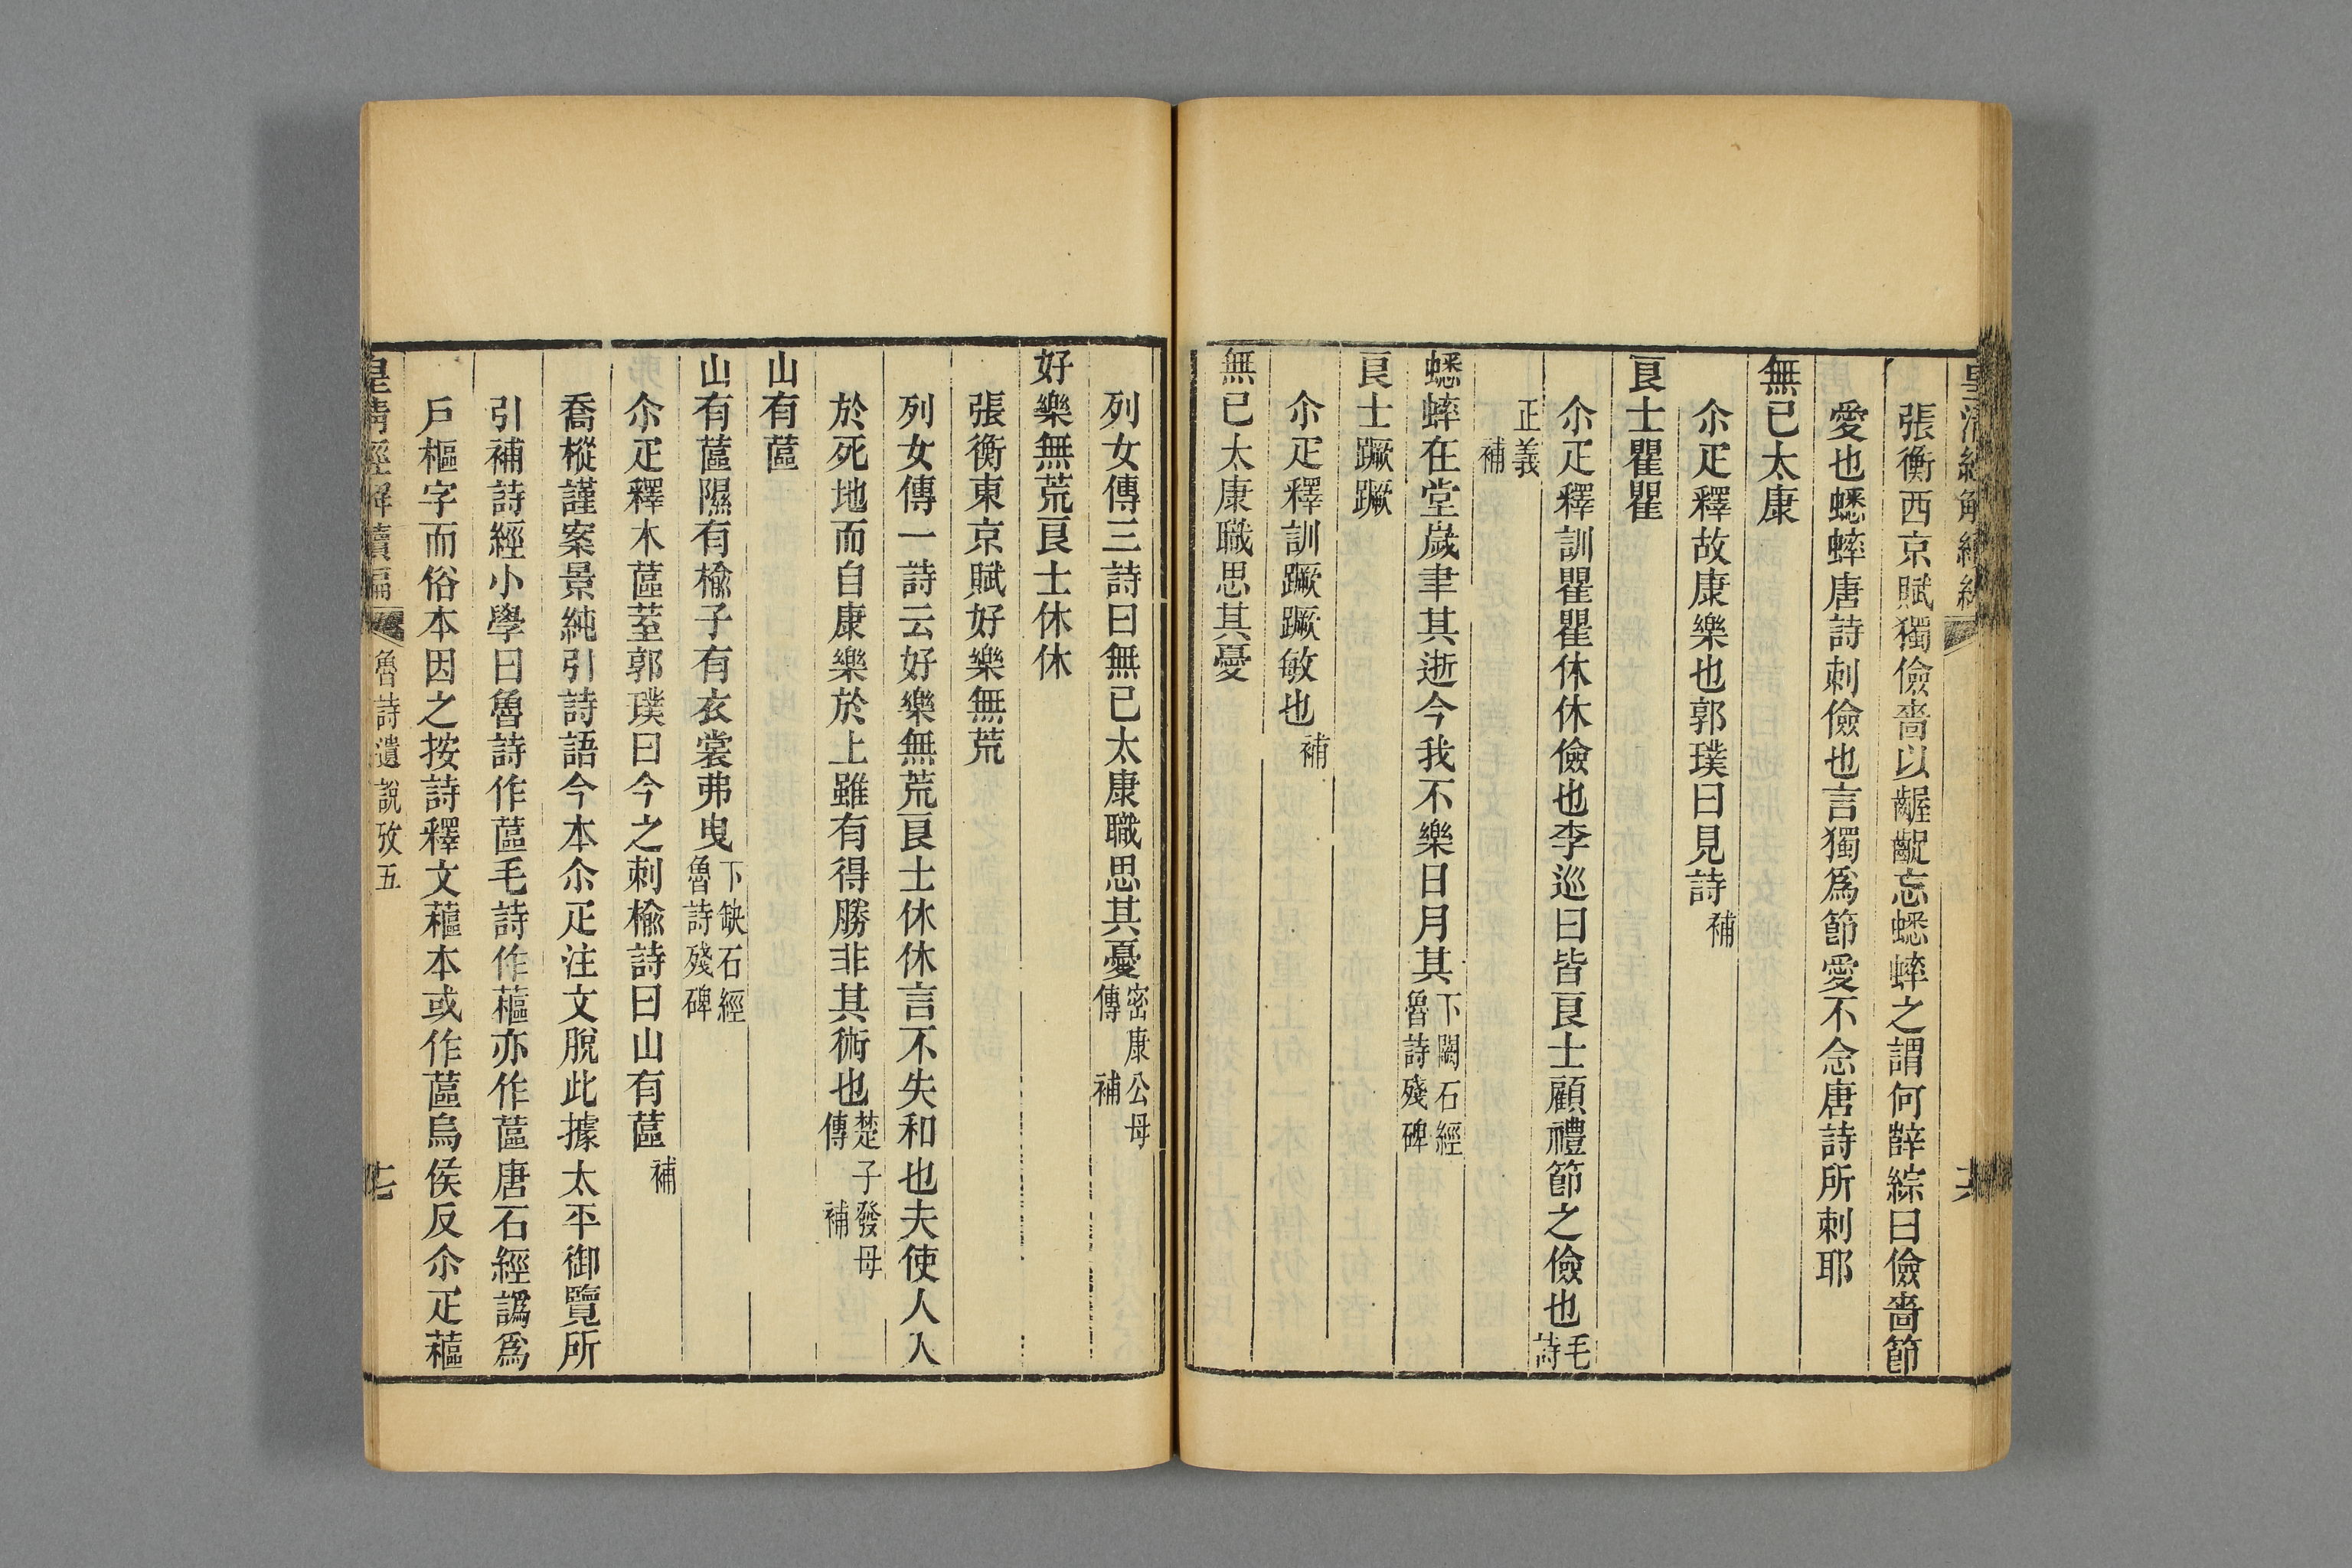 張衡西京賦獨儉嗇以齷齪忘蟋蟀之謂何薛綜曰儉嗇節
愛也蟋蟀唐詩刺儉也言獨爲節愛不念唐詩所刺耶
無已太康
尒疋釋故康樂也郭璞曰見詩補
良士瞿瞿
尒疋釋訓瞿瞿休休儉也李巡曰皆良士顧禮節之儉也毛詩
正義補
蟋蟀在堂歲聿其逝今我不樂日月其下闕石經魯詩殘碑
良士蹶蹶
尒疋釋訓蹶蹶敏也補
無已太康職思其憂
列女傳三詩曰無已太康職思其憂密康公母傳補
好樂無荒良士休休
張衡東京賦好樂無荒
列女傳一詩云好樂無荒良士休休言不失和也夫使人入
於死地而自康樂於上雖有得勝非其術也楚子發母傳補
山有蓲
山有蓲隰有楡子有衣裳弗曳下缺石經魯詩殘碑
尒疋釋木蓲荎郭璞曰今之刺楡詩曰山有蓲補
喬樅謹案景純引詩語今本尒疋注文脫此據太平御覽所
引補詩經小學曰魯詩作蓲毛詩作藲亦作蓲唐石經譌爲
戶樞字而俗本因之按詩釋文藲本或作蓲烏侯反尒疋藲
皇清經解續編 魯詩遺說攷五